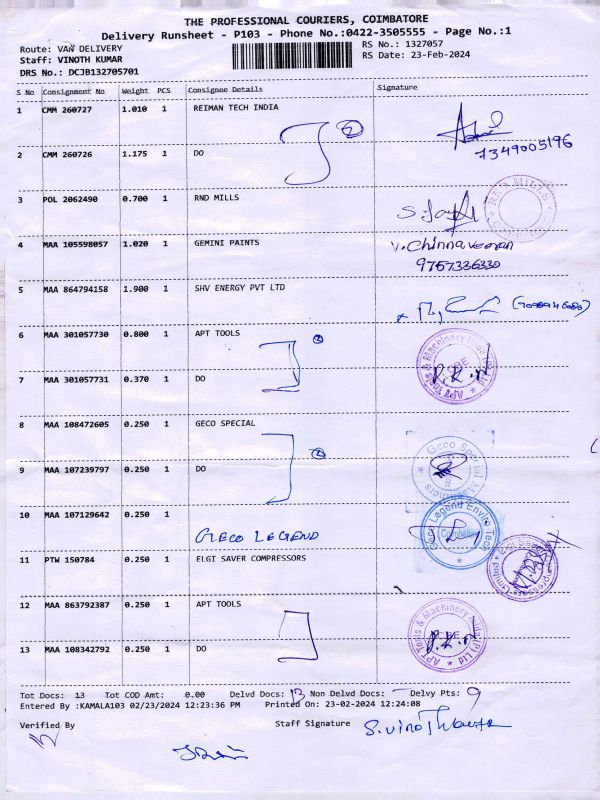 THE PROFESSIONAL COURIERS, COIMBATORE
Delivery Runsheet - P103 - Phone No.:0422-3505555 - Page No.:1
Route: VAN DELIVERY RS No.: 1327057
Staff: VINOTH KUMAR RS Date: 23-Feb-2024
DRS No.: DCJB132705701
S No Consignment No Weight PCS Consignee Details Signature
1 CMM 260727 1.010 1 REIMAN TECH INDIA
2
7349005196
2 CMM 260726 1.175 1 DO
3 POL 2062490 0.700 1 RND MILLS
4 MAA 105598057 1.020 1 GEMINI PAINTS V. Chinnaveeran
9757336330
5 MAA 864794158 1.900 1 SHV ENERGY PVT LTD
6 MAA 301057730 0.800 1 APT TOOLS
2
APT Tools & Machinery India (P) Ltd
7 MAA 301057731 0.370 1 DO
8 MAA 108472605 0.250 1 GECO SPECIAL
2
Geco Special
9 MAA 107239797 0.250 1 DO
10 MAA 107129642 0.250 1
GECO LEGEND
Geco Legend Enviro Tech
Coimbatore
11 PTW 150784 0.250 1 ELGI SAVER COMPRESSORS
12 MAA 863792387 0.250 1 APT TOOLS
APT Tools & Machinery India (P) Ltd
13 MAA 108342792 0.250 1 DO
Tot Docs: 13 Tot COD Amt: 0.00 Delvd Docs: 13 Non Delvd Docs: Delvy Pts: 9
Entered By :KAMALA103 02/23/2024 12:23:36 PM Printed On: 23-02-2024 12:24:08
Verified By Staff Signature S. Vinothkumar